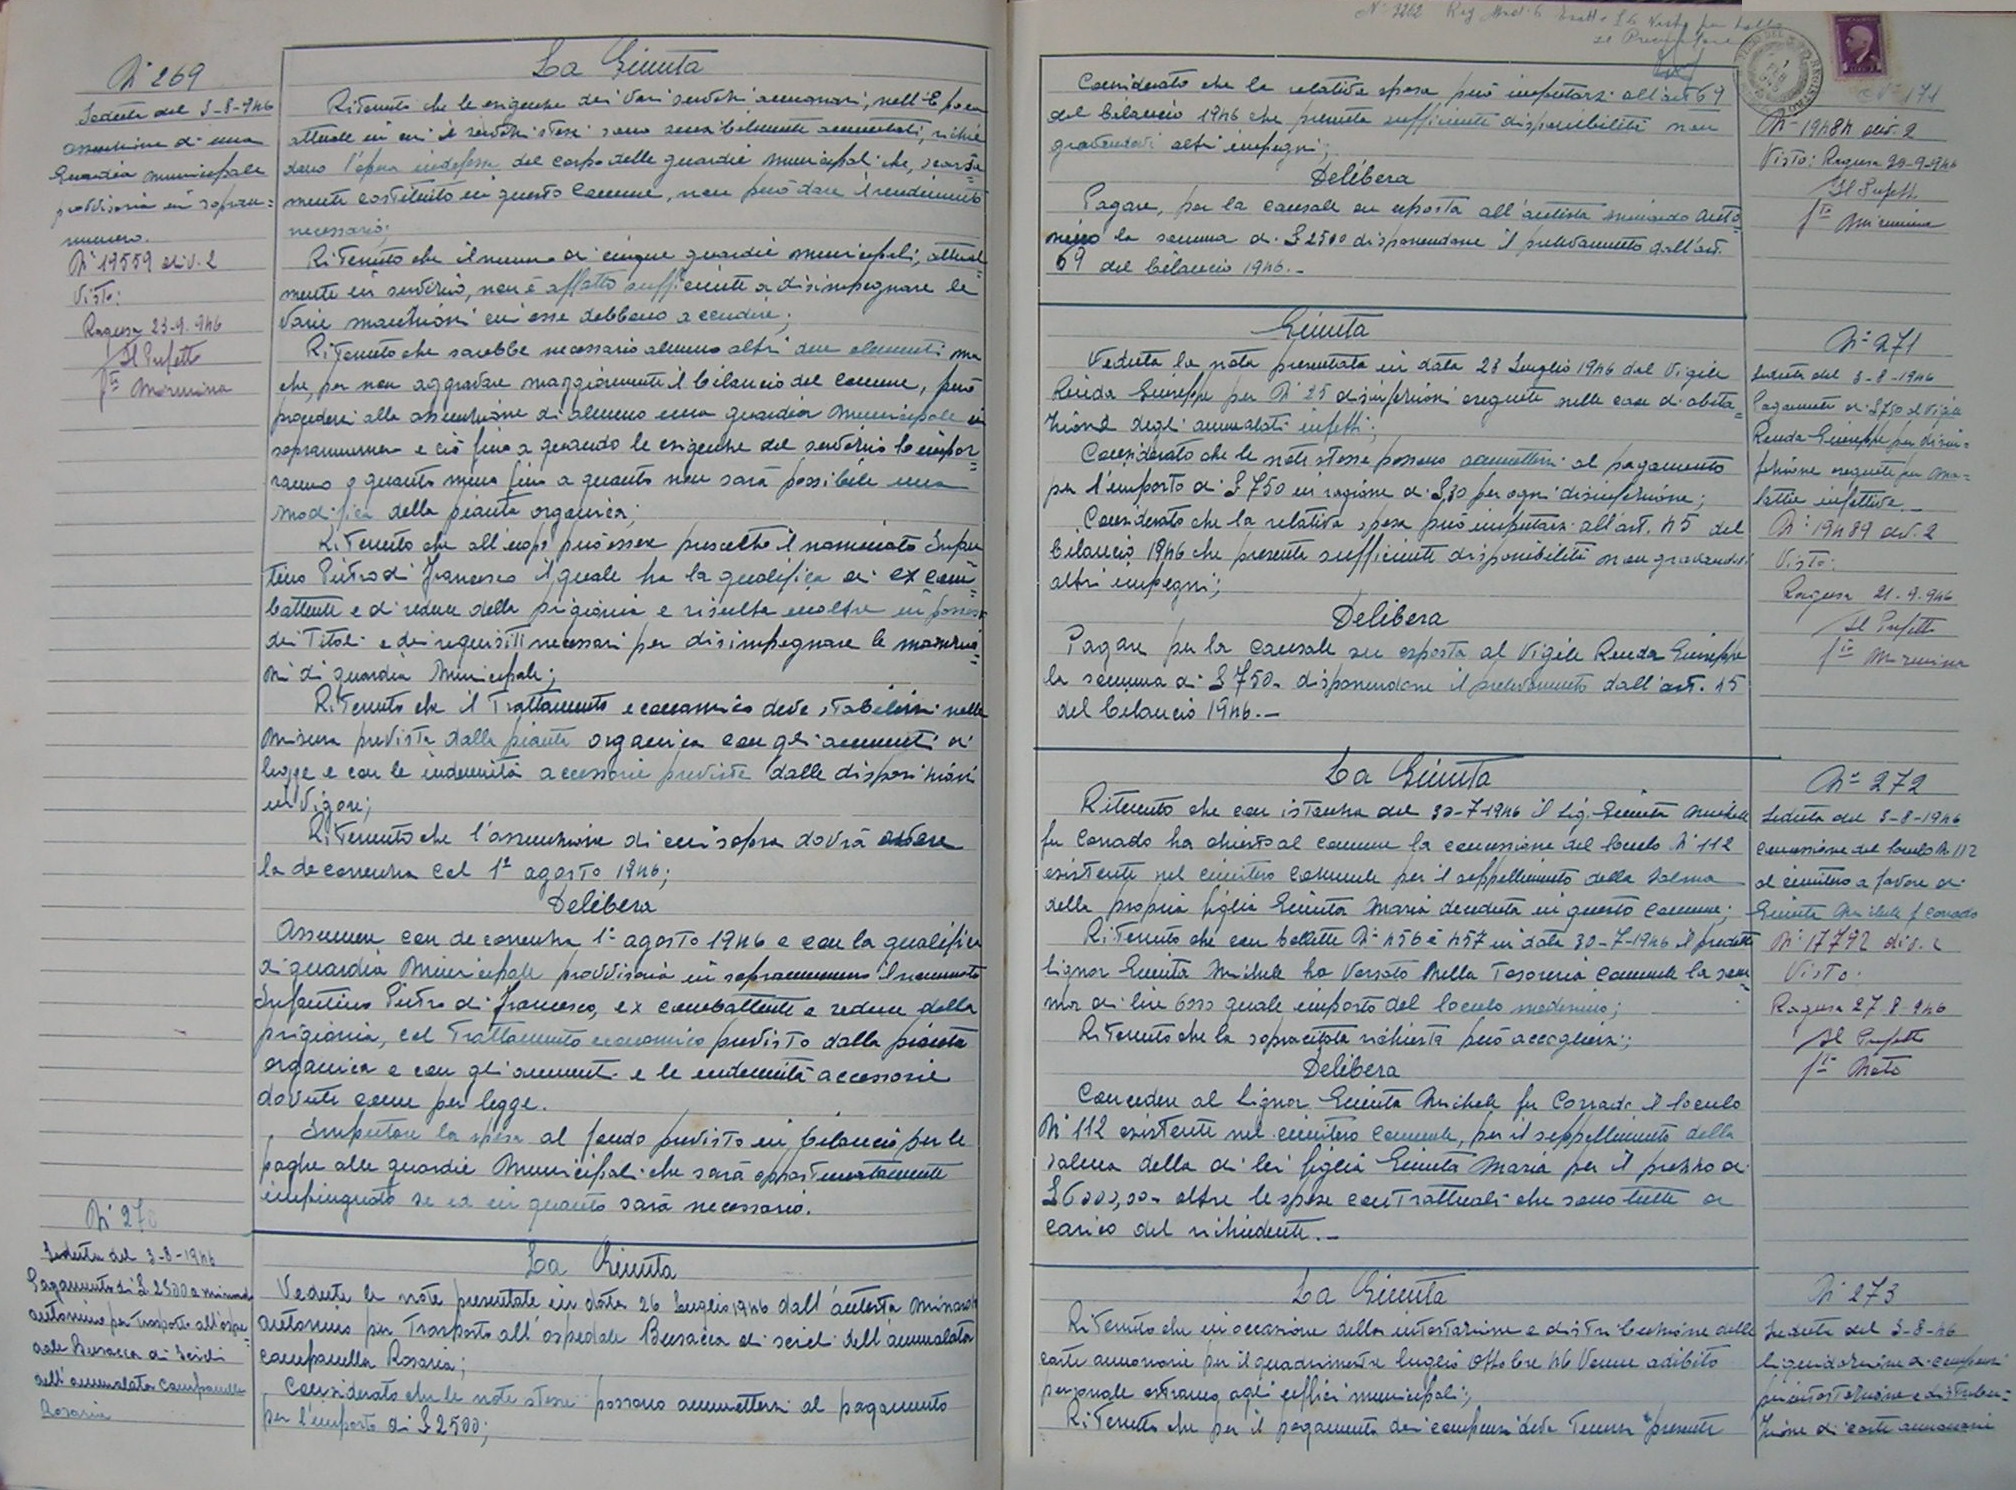 N° 269
Seduta del 3-8-946
assunzione di una
Guardia Municipale
provvisoria in sopran=
numero.
N° 19559 div. 2
Visto:
Ragusa 23-9-946
Il Prefetto
fto Mormina
La Giunta
Ritenuto che le esigenze dei vari servizi annonari, nell'Epoca
attuale in cui i servizi stessi sono sensibilmente aumentati, richie
dono l'opera indefessa del corpo delle guardie municipali che, scarsa=
mente costituito in questo Comune, non può dare il rendimento
necessario;
Ritenuto che il numero di cinque guardie municipali, attual=
mente in servizio, non è affatto sufficiente a disimpegnare le
varie mansioni cui esse debbono accudire;
Ritenuto che sarebbe necessario almeno altri due elementi ma
che, per non aggravare maggiormente il bilancio del Comune, può
procedersi alla assunzione di almeno una guardia Municipale in
soprannumero e ciò fino a quando le esigenze del servizio lo impor=
ranno o quanto meno fino a quanto non sarà possibile una
modifica della pianta organica;
Ritenuto che all'uopo può esser prescelto il nominato Infan
tino Pietro di Francesco il quale ha la qualifica di ex com=
battente e di reduce della prigionia e risulta inoltre in possesso
dei Titoli e dei requisiti necessari per disimpegnare le mansio=
ni di guardia Municipale;
Ritenuto che il Trattamento economico deve stabilirsi nella
misura prevista dalla pianta organica con gli aumenti di
legge e con le indennità accessorie previste dalle disposizioni
in vigore;
Ritenuto che l'assunzione di cui sopra dovrà avere
la decorrenza col 1° agosto 1946;
Delibera
Assumere con decorrenza 1° agosto 1946 e con la qualifica
di guardia Municipale provvisoria in soprannumero il nominato
Infantino Pietro di Francesco, ex combattente e reduce della
prigionia, col Trattamento economico previsto dalla pianta
organica e con gli aumenti e le indennità accessorie
dovute come per legge.
Imputare la spesa al fondo previsto in bilancio per le
paghe alle guardie Municipali che sarà opportunatamente
impinguato se ed in quanto sarà necessario.
N° 270
Seduta del 3-8-1946
Pagamento di £ 2500 a Minardi
Antonino per Trasporto all'ospe=
dale Busacca di Scicli
dell'ammalata Campanella
Rosaria
La Giunta
Vedute le note presentate in data 26 Luglio 1946 dall'autista Minardi
Antonino per Trasporto all'ospedale Busacca di Scicli dell'ammalata
Campanella Rosaria;
Considerato che le note stesse possono ammettersi al pagamento
per l'importo di £ 2500;
Considerato che la relativa spesa può imputarsi all'art 69
del bilancio 1946 che presenta sufficiente disponibilità non
gravandovi altri impegni;
Delibera
Pagare, per la causale su esposta all'autista Minardo Anto
nino la somma di £ 2500 disponendone il prelevamento dall'art.
69 del bilancio 1946.-
N° 19484 div. 2
Visto: Ragusa 20-9-946
Il Prefetto
fto Mormina
Giunta
Veduta la nota presentata in data 23 Luglio 1946 dal Vigile
Renda Giuseppe per N° 25 disinfezioni eseguite nelle case di abita=
zione degli ammalati infetti;
Considerato che le note stesse possono ammettersi al pagamento
per l'importo di £ 750 in ragione di £ 30 per ogni disinfezione;
Considerato che la relativa spesa può imputarsi all'art. 45 del
bilancio 1946 che presenta sufficiente disponibilità non gravandovi
altri impegni;
Delibera
Pagare per la causale su esposta al Vigile Renda Giuseppe
la somma di £ 750. disponendone il prelevamento dall'art. 45
del bilancio 1946.-
N° 271
Seduta del 3-8-1946
Pagamento di £ 750 al Vigile
Renda Giuseppe per disin=
fezione eseguite per ma=
lattie infettive.-
N° 19489 div. 2
Visto:
Ragusa 21-9-946
Il Prefetto
fto Mormina
La Giunta
Ritenuto che con istanza del 30-7-1946 il Sig. Giunta Michele
fu Corrado ha chiesto al Comune la concessione del loculo N° 112
esistente nel cimitero Comunale per il seppellimento della salma
della propria figlia Giunta Maria deceduta in questo Comune;
Ritenuto che con bollette N° 456 e 457 in data 30-7-1946 il predetto
Signor Giunta Michele ha versato nella Tesoreria Comunale la som
ma di lire 6000 quale importo del loculo medesimo;
Ritenuto che la sopracitata richiesta può accogliersi;
Delibera
Concedere al Signor Giunta Michele fu Corrado il loculo
N° 112 esistente nel cimitero Comunale, per il seppellimento della
salma della di lui figlia Giunta Maria per il prezzo di
£ 6000,00. oltre le spese contrattuali che sono tutte a
carico del richiedente.-
N° 272
Seduta del 3-8-1946
Concessione del loculo N 112
al cimitero a favore di
Giunta Michele f Corrado
N° 17792 div. 2
Visto:
Ragusa 27-8-946
Il Prefetto
fto Noto
La Giunta
Ritenuto che in occasione della intestazione e distribuzione delle
carte annonarie per il quadrimestre luglio Ottobre 46 venne adibito
personale estraneo agli uffici municipali;
Ritenuto che per il pagamento dei compensi deve Tenersi presente
N° 273
Seduta del 3-8-46
liquidazione di compensi
per intestazione e distribu=
zione di carte annonarie